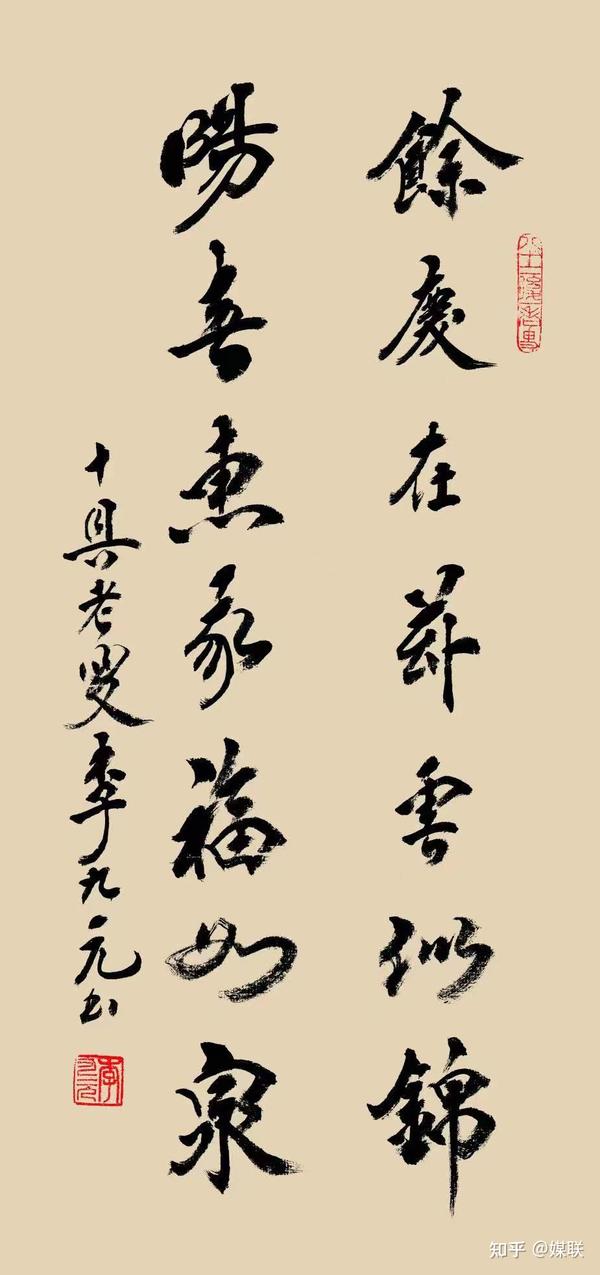 餘慶在雲似錦
陽春惠我福如泉
十具老叟李九元书
知乎 @媒联